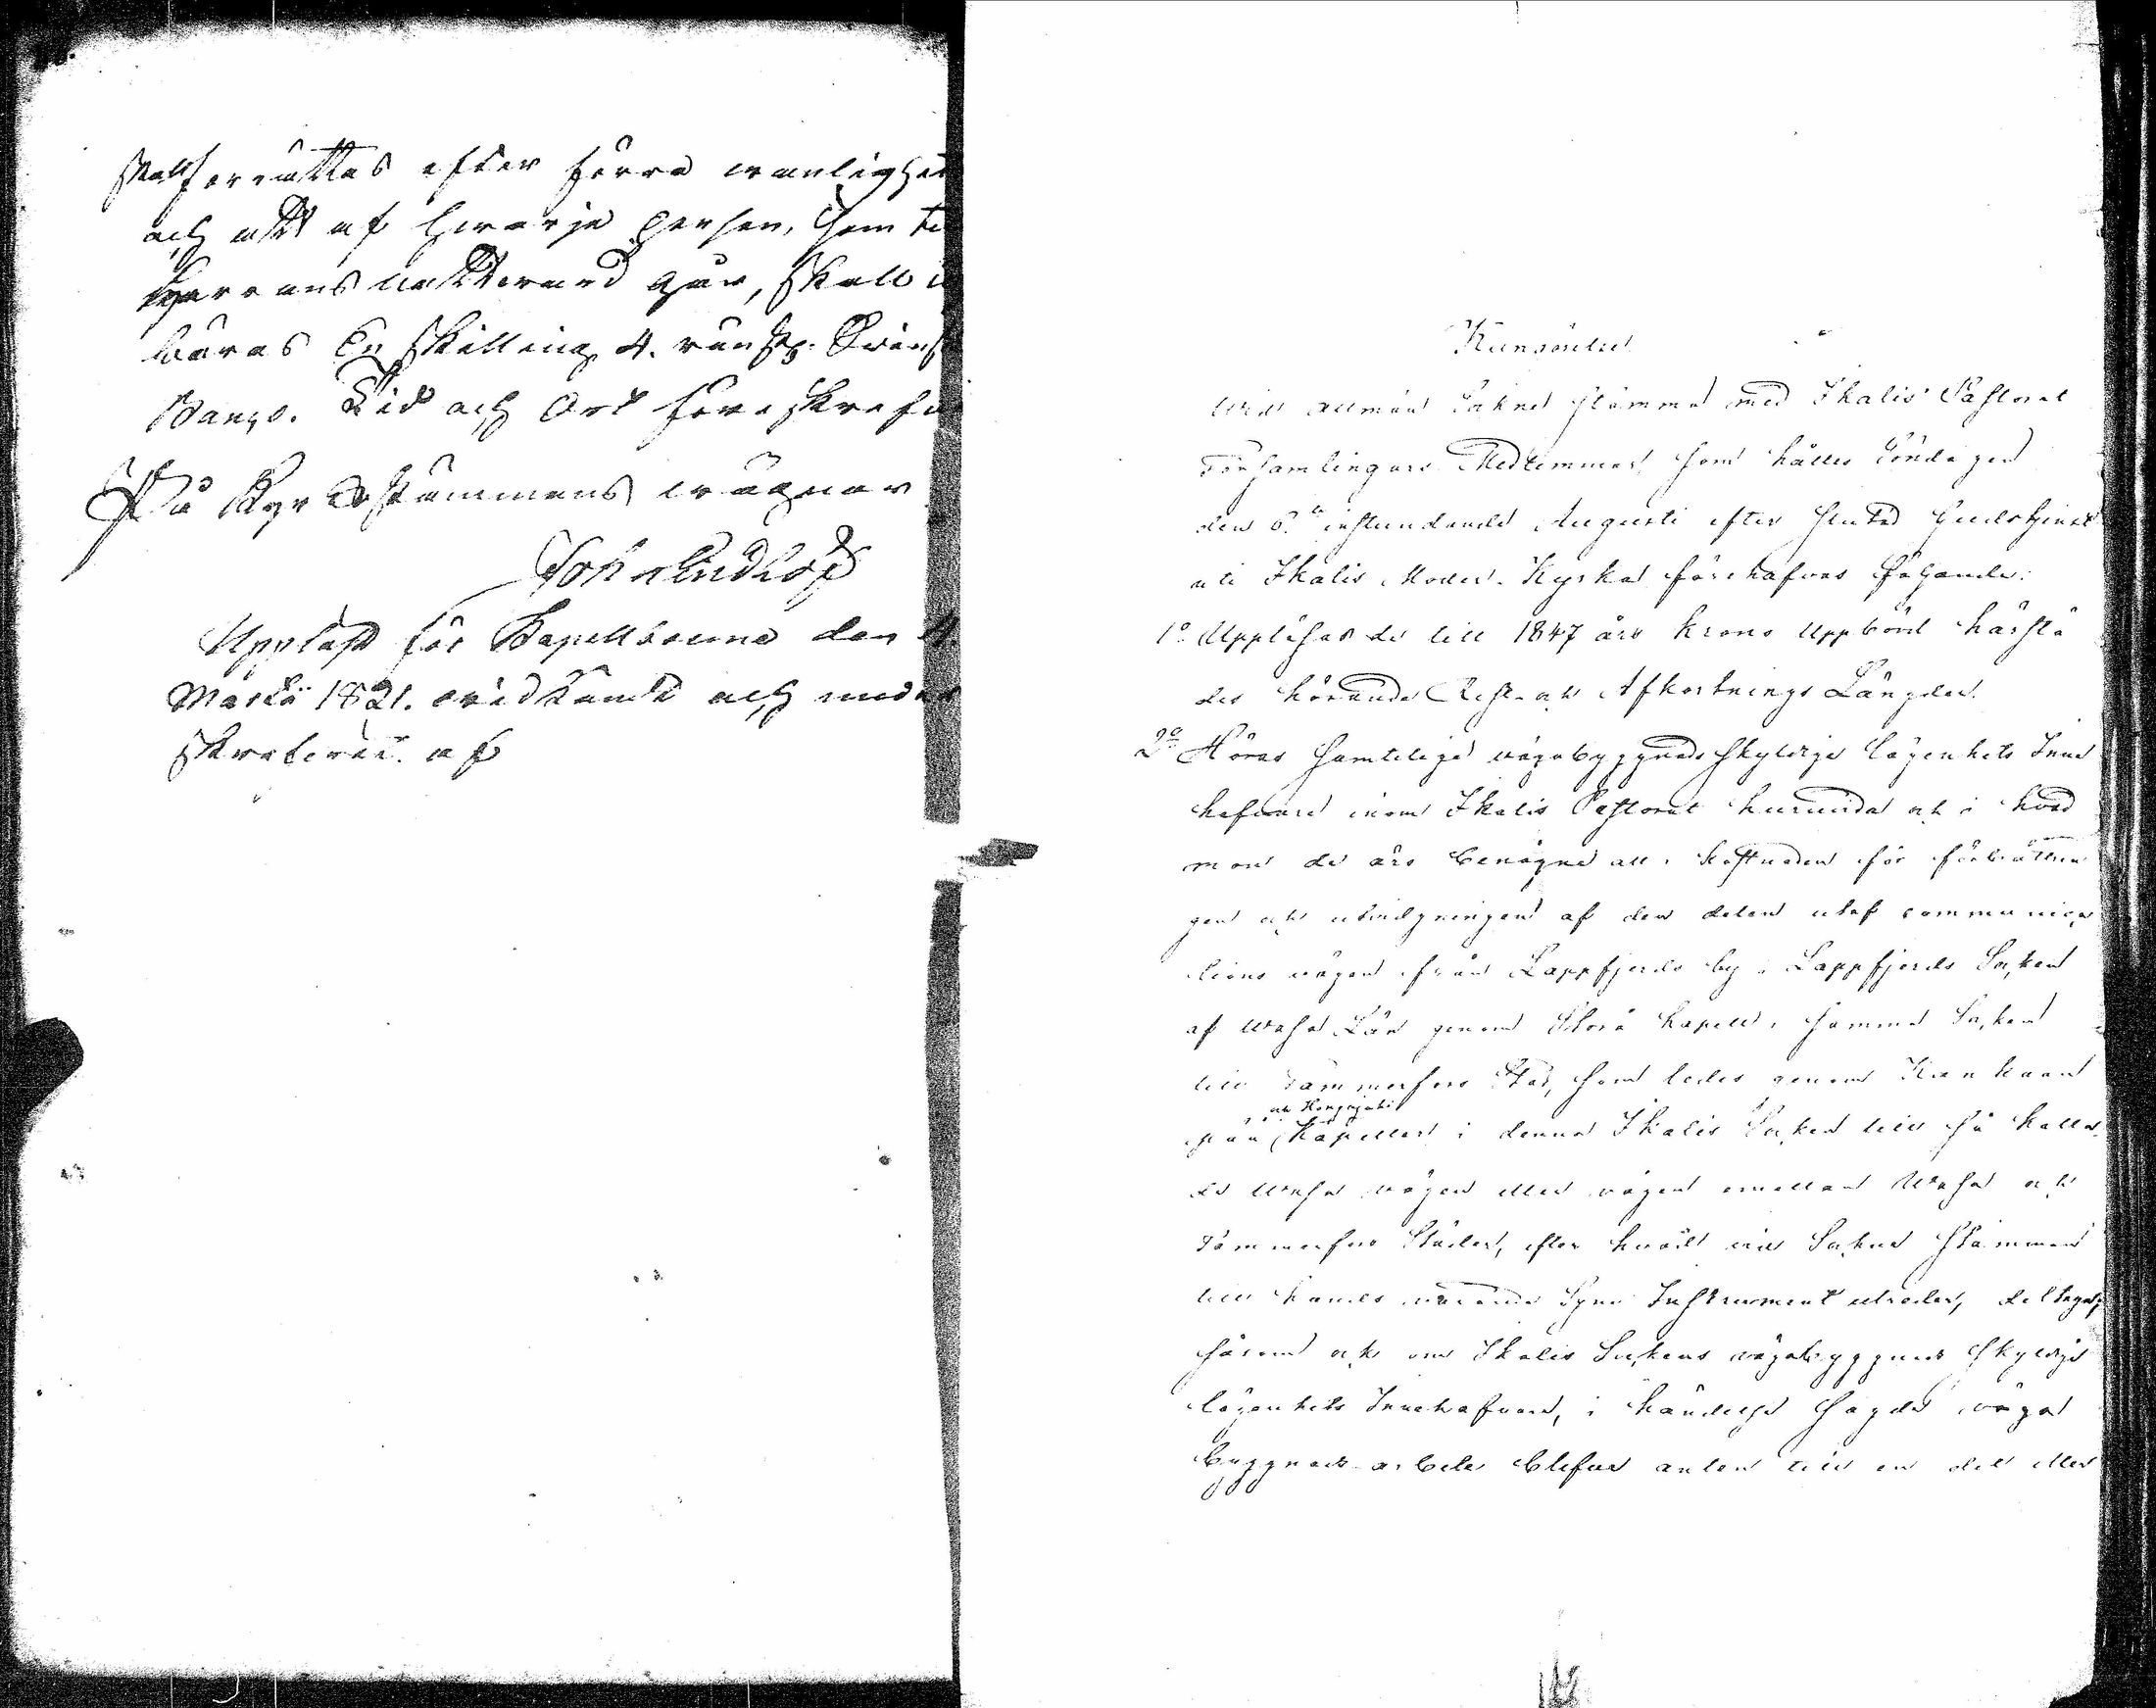 skall förrättas efter förra wanlighet
och att af hwarje person, som til
Herrans nattward går, skall
bäras En skilling 4. runst. Svensk
Banco. Tid och Ort föreskrefne
På Kyrkostämmans wägnar
Joh. Lindlöf
Uppläst för Kapellboerne den 4
Martii 1821. widkändt och under
skrefwet af
Kungörelse
Wid allmän Sokne stämma med Ikalis Pastorat
Församlingars Medlemmar som hålles Söndagen
den 6te instundande Augusti efter slutad Gudstjenst
uti Ikalis Moder-Kyrka förehafves följande:
1o Uppläses de till 1847 års Krono Uppbörd härstä
des hörande Rest- och Afkortnings Längder.
2o Höras samtelige vägabyggnads skyldige lägenhets Inne
hafvare inom Ikalis Pastorat huruvida och i hvad
mon de äro benägne att i kostnaden för förbättrin
gen och utvidgningen af den delen utaf communica
tions vägen från Lappfjerds by i Lappfjerds Socken
af Wasa Län genom Storå Kapell i samma Socken
till Tammerfors Stad, som ledes genom Kankaan
pää och Honkajoki Kapeller i denna Ikalis Socken till så kalla
de Wasa vägen eller vägen emellan Wasa och
Tammerfors Städer, efter hvad vid Sockne stämman
till hands varande Syne Instrument utreder, deltaga,
såsom och om Ikalis Sockens vägabyggnads skyldige
lägenhets Innehafvare, i händelse sagde väga
byggnads arbete blefve antan till en del eller